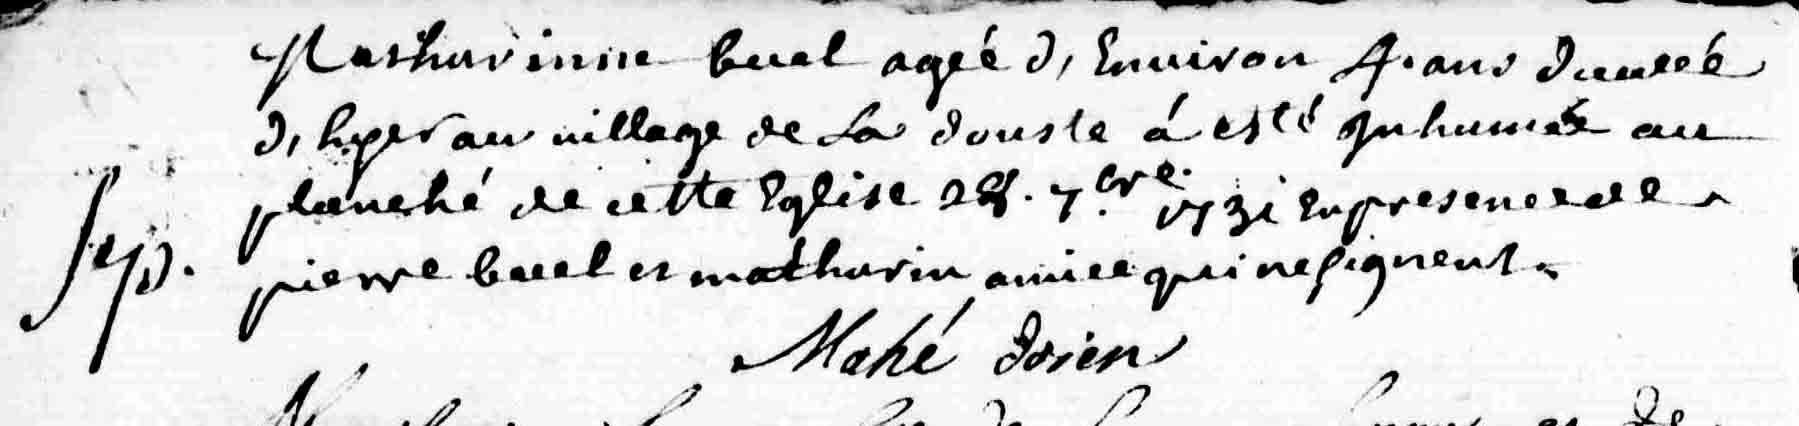 Mathurinne buel ageé d, Environ 4. ans
d, hyer au village de La douste á esté Inhumée au
planché de cette Eglise 28. 7.bre. 1731 En presence de
Sep. pierre buel et mathurin amice qui ne signent.
Mahé